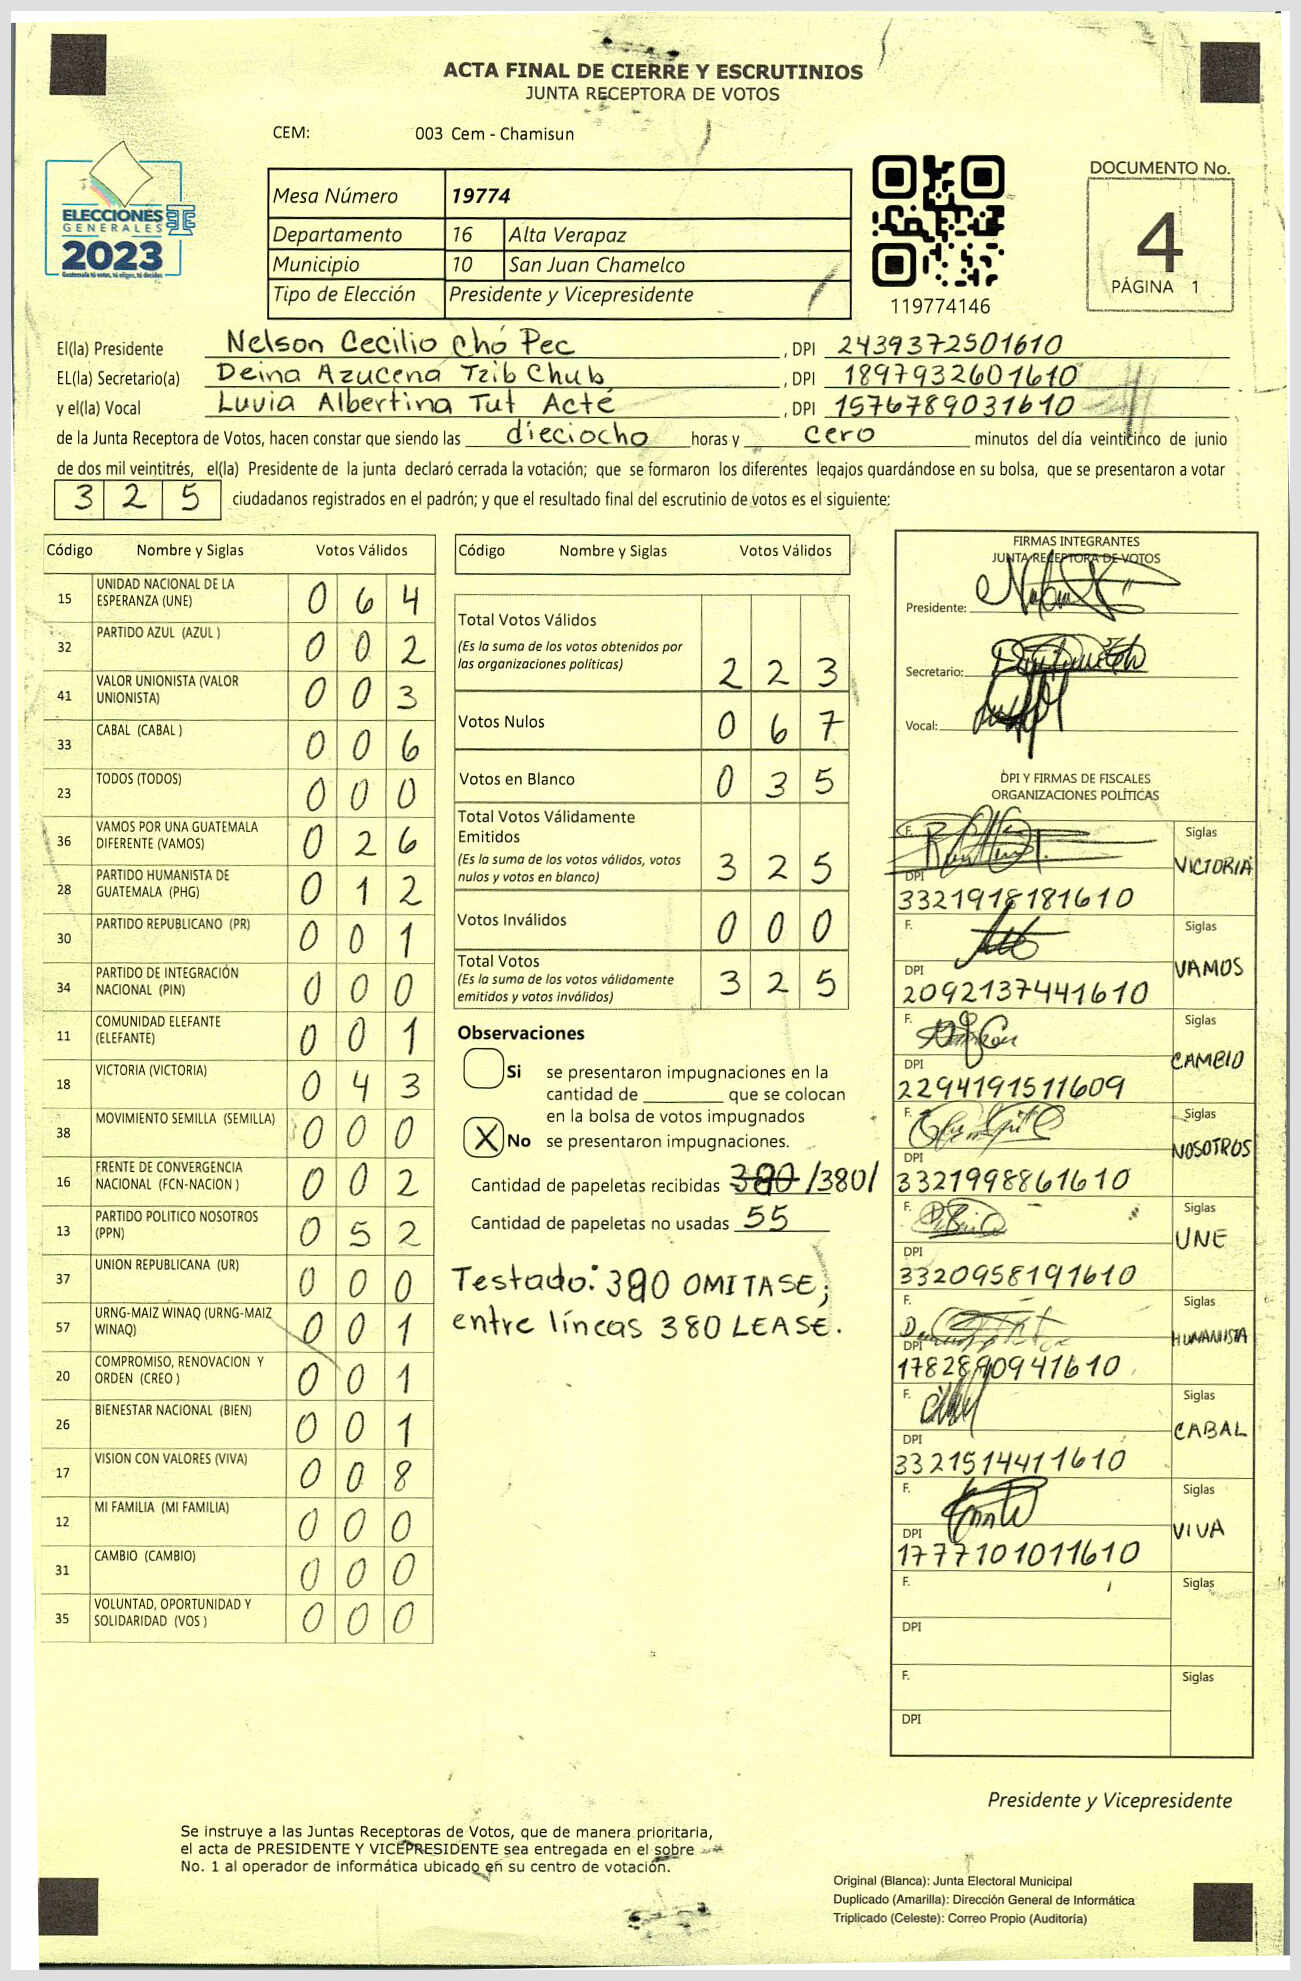 ACTA FINAL DE CIERRE Y ESCRUTINIOS
JUNTA RECEPTORA DE VOTOS
CEM: 003 Cem - Chamisun
ELECCIONES
GENERALES
2023
Guatemala tú votas, tú eliges, tú decides
Mesa Número 19774
Departamento 16 Alta Verapaz
Municipio 10 San Juan Chamelco
Tipo de Elección Presidente y Vicepresidente
119774146
DOCUMENTO No.
4
PÁGINA 1
El(la) Presidente Nelson Cecilio Chó Pec , DPI 2439372501610
EL(la) Secretario(a) Deina Azucena Tzib Chub , DPI 1897932601610
y el(la) Vocal Luvia Albertina Tut Acté , DPI 1576789031610
de la Junta Receptora de Votos, hacen constar que siendo las dieciocho horas y cero minutos del día veinticinco de junio
de dos mil veintitrés, el(la) Presidente de la junta declaró cerrada la votación; que se formaron los diferentes legajos guardándose en su bolsa, que se presentaron a votar
3 2 5 ciudadanos registrados en el padrón; y que el resultado final del escrutinio de votos es el siguiente:
Código Nombre y Siglas Votos Válidos
15 UNIDAD NACIONAL DE LA ESPERANZA (UNE) 0 6 4
32 PARTIDO AZUL (AZUL ) 0 0 2
41 VALOR UNIONISTA (VALOR UNIONISTA) 0 0 3
33 CABAL (CABAL ) 0 0 6
23 TODOS (TODOS) 0 0 0
36 VAMOS POR UNA GUATEMALA DIFERENTE (VAMOS) 0 2 6
28 PARTIDO HUMANISTA DE GUATEMALA (PHG) 0 1 2
30 PARTIDO REPUBLICANO (PR) 0 0 1
34 PARTIDO DE INTEGRACIÓN NACIONAL (PIN) 0 0 0
11 COMUNIDAD ELEFANTE (ELEFANTE) 0 0 1
18 VICTORIA (VICTORIA) 0 4 3
38 MOVIMIENTO SEMILLA (SEMILLA) 0 0 0
16 FRENTE DE CONVERGENCIA NACIONAL (FCN-NACION ) 0 0 2
13 PARTIDO POLITICO NOSOTROS (PPN) 0 5 2
37 UNION REPUBLICANA (UR) 0 0 0
57 URNG-MAIZ WINAQ (URNG-MAIZ WINAQ) 0 0 1
20 COMPROMISO, RENOVACION Y ORDEN (CREO ) 0 0 1
26 BIENESTAR NACIONAL (BIEN) 0 0 1
17 VISION CON VALORES (VIVA) 0 0 8
12 MI FAMILIA (MI FAMILIA) 0 0 0
31 CAMBIO (CAMBIO) 0 0 0
35 VOLUNTAD, OPORTUNIDAD Y SOLIDARIDAD (VOS ) 0 0 0
Código Nombre y Siglas Votos Válidos
Total Votos Válidos
(Es la suma de los votos obtenidos por
las organizaciones políticas) 2 2 3
Votos Nulos 0 6 7
Votos en Blanco 0 3 5
Total Votos Válidamente
Emitidos
(Es la suma de los votos válidos, votos
nulos y votos en blanco) 3 2 5
Votos Inválidos 0 0 0
Total Votos
(Es la suma de los votos válidamente
emitidos y votos inválidos) 3 2 5
Observaciones
Si se presentaron impugnaciones en la
cantidad de ________ que se colocan
en la bolsa de votos impugnados
X No se presentaron impugnaciones.
Cantidad de papeletas recibidas 380 /380/
Cantidad de papeletas no usadas 55
Testado: 380 OMITASE;
entre líneas 380 LEASE.
FIRMAS INTEGRANTES
JUNTA RECEPTORA DE VOTOS
Presidente:
Secretario:
Vocal:
DPI Y FIRMAS DE FISCALES
ORGANIZACIONES POLÍTICAS
F. Siglas
VICTORIA
DPI
3321918181610
F. Siglas
VAMOS
DPI
2092137441610
F. Siglas
CAMBIO
DPI
2294191511609
F. Siglas
NOSOTROS
DPI
3321998861610
F. Siglas
UNE
DPI
3320958191610
F. Siglas
HUMANISTA
DPI
1782890941610
F. Siglas
CABAL
DPI
3321514411610
F. Siglas
VIVA
DPI
1777101011610
F. Siglas
DPI
F. Siglas
DPI
Presidente y Vicepresidente
Se instruye a las Juntas Receptoras de Votos, que de manera prioritaria,
el acta de PRESIDENTE Y VICEPRESIDENTE sea entregada en el sobre
No. 1 al operador de informática ubicado en su centro de votación.
Original (Blanca): Junta Electoral Municipal
Duplicado (Amarilla): Dirección General de Informática
Triplicado (Celeste): Correo Propio (Auditoría)